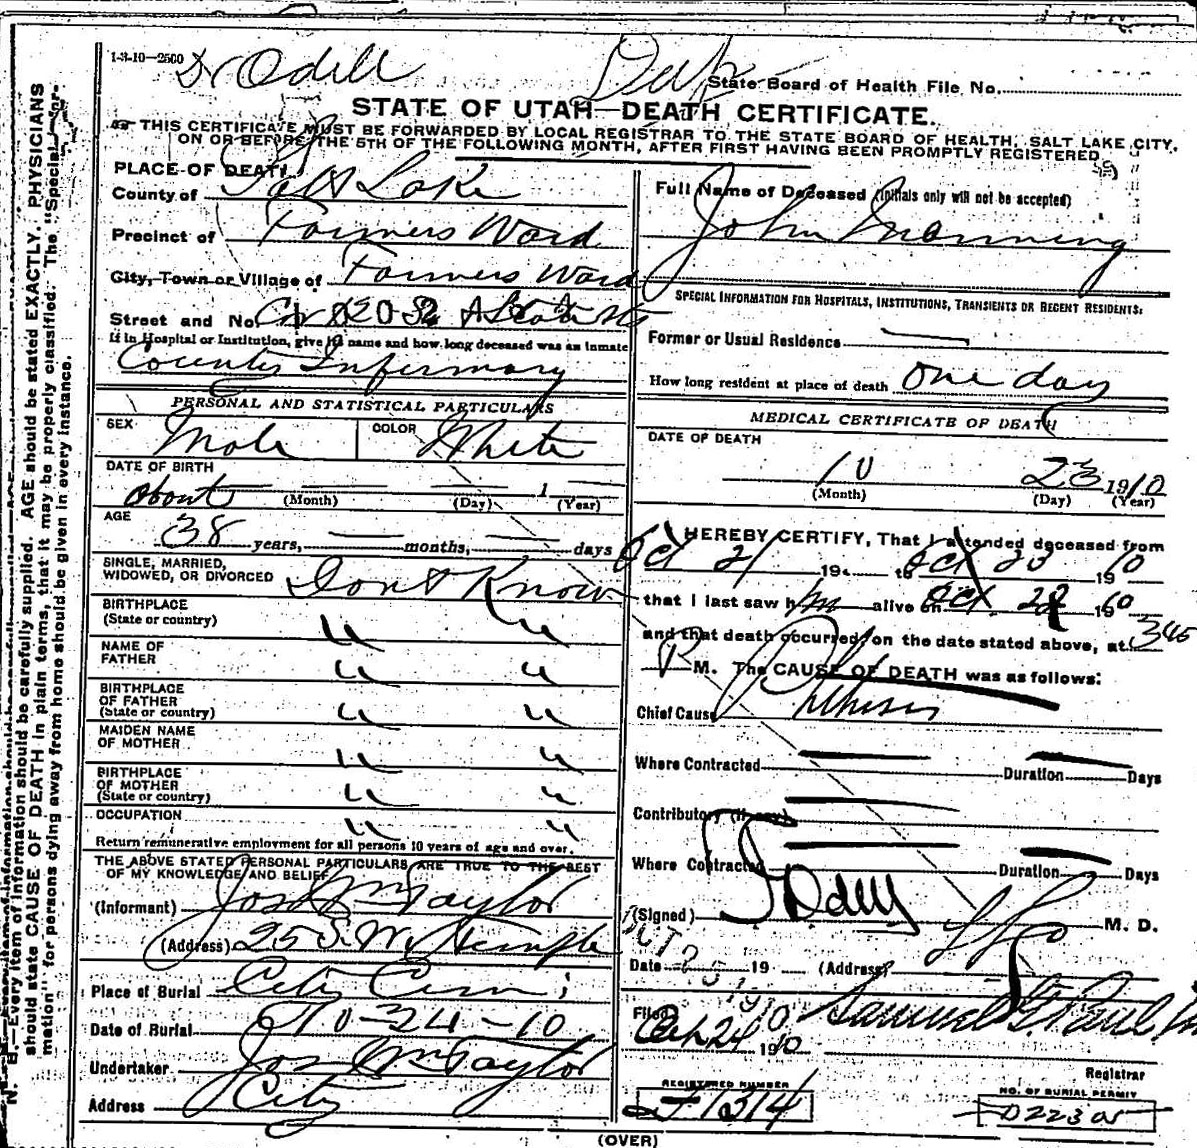 1-3-10—2500
Dr Odell
Dup
State Board of Health File No.
STATE OF UTAH—DEATH CERTIFICATE.
THIS CERTIFICATE MUST BE FORWARDED BY LOCAL REGISTRAR TO THE STATE BOARD OF HEALTH, SALT LAKE CITY,
ON OR BEFORE THE 5TH OF THE FOLLOWING MONTH, AFTER FIRST HAVING BEEN PROMPTLY REGISTERED
PLACE OF DEATH
County of Salt Lake
Precinct of Farmers Ward
City, Town or Village of Farmers Ward
Street and No.
If in Hospital or Institution, give its name and how long deceased was an inmate
County Infirmary
PERSONAL AND STATISTICAL PARTICULARS
SEX Male COLOR White
DATE OF BIRTH
about (Month) (Day) 1 (Year)
AGE
38 years, months, days
SINGLE, MARRIED,
WIDOWED, OR DIVORCED Dont Know
BIRTHPLACE
(State or country) " "
NAME OF
FATHER " "
BIRTHPLACE
OF FATHER
(State or country) " "
MAIDEN NAME
OF MOTHER " "
BIRTHPLACE
OF MOTHER
(State or country) " "
OCCUPATION " "
Return remunerative employment for all persons 10 years of age and over.
THE ABOVE STATED PERSONAL PARTICULARS ARE TRUE TO THE BEST
OF MY KNOWLEDGE AND BELIEF
(Informant) Jos Wm Taylor
(Address) 25 S. W. Temple
Place of Burial City Cem
Date of Burial 10-24-10
Undertaker Jos Wm Taylor
Address City
Full Name of Deceased (Initials only will not be accepted)
John Manning
SPECIAL INFORMATION FOR HOSPITALS, INSTITUTIONS, TRANSIENTS OR RECENT RESIDENTS:
Former or Usual Residence
How long resident at place of death one day
MEDICAL CERTIFICATE OF DEATH
DATE OF DEATH
10 23 1910
(Month) (Day) (Year)
I HEREBY CERTIFY, That I attended deceased from
Oct 21 19 to Oct 23 1910
that I last saw him alive on Oct. 1910
and that death occurred on the date stated above, at 345
P M. The CAUSE OF DEATH was as follows:
Chief Cause Phthisis
Where Contracted Duration Days
Contributory (if any)
Where Contracted Duration Days
(Signed) Odell M. D.
OCT 25 1910
Date 19 (Address)
Filed Oct 24 1910 Samuel G. Paul
Registrar
REGISTERED NUMBER
J 1314
NO. OF BURIAL PERMIT
(OVER)
N. B.—Every item of information should be carefully supplied. AGE should be stated EXACTLY. PHYSICIANS
should state CAUSE OF DEATH in plain terms, that it may be properly classified. The "Special Infor-
mation" for persons dying away from home should be given in every instance.